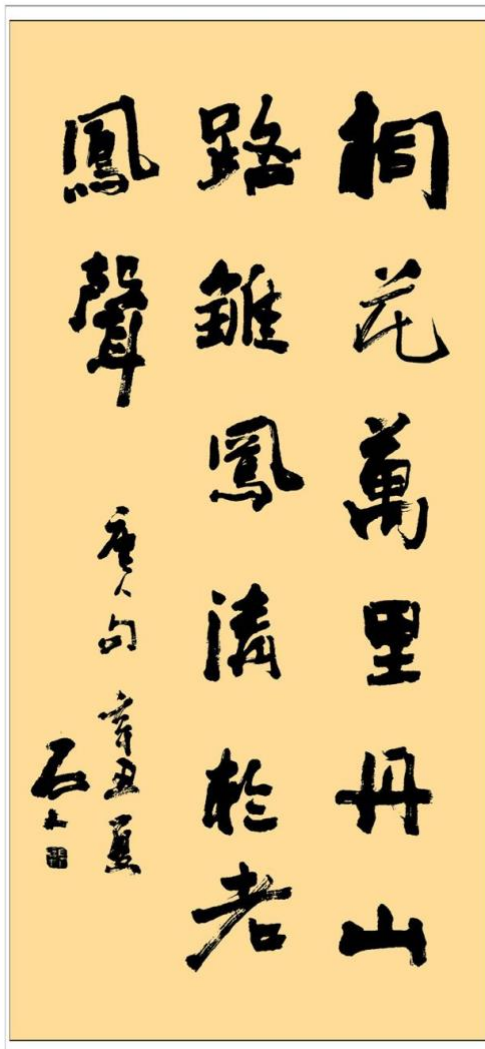 桐花萬里丹山
路雛鳳清於老
鳳聲
唐人句 辛丑夏
石